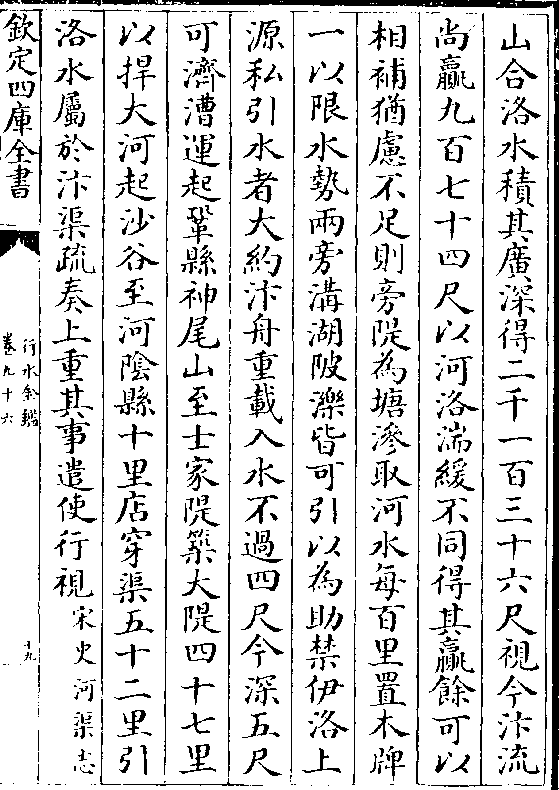 山合洛水積其廣深得二千一百三十六尺視今汴流
尚贏九百七十四尺以河洛湍緩不同得其贏餘可以
相補猶慮不足則旁隄為塘滲取河水每百里置木牌
一以限水勢兩旁溝湖陂濼皆可引以為助禁伊洛上
源私引水者大約汴舟重載入水不過四尺今深五尺
可濟漕運起鞏縣神尾山至士家隄築大隄四十七里
以捍大河起沙谷至河陰縣十里店穿渠五十二里引
洛水屬於汴渠疏奏上重其事遣使行視宋史河渠志
欽定四庫全書
行水金鑑
卷九十六
十九